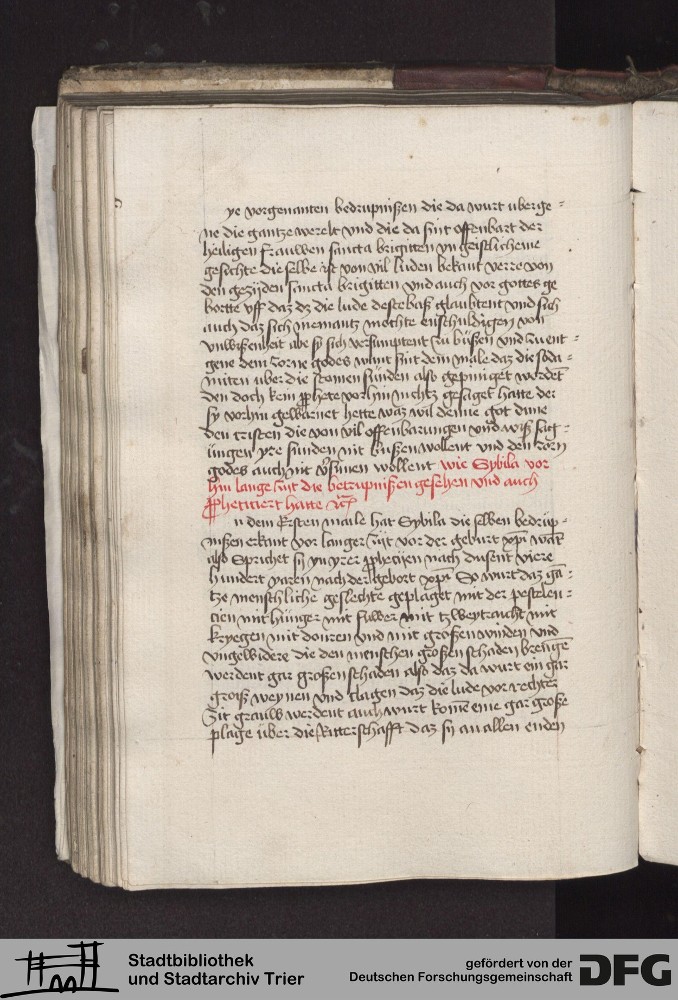 ye vorgenanten bedrupnißen die da wurt uberge⸗
ne die gantze werelt vnd die da sint offenbart der
heiligen frauwen sancta brigitten yn geistlicheme
gesichte die selbe ist von vil luden bekant verre von
den gezijden sancta brigitten vnd auch vor gottes ge
bortte vff daz dz die lude deste baß glaubtent vnd sich
auch daz sich niemantz mochte enschuldigen von
vnwißenheit abe sy sich versumptent zu büßen vnd zu ent⸗
gene dem zorne godes want sint dem male daz die soda⸗
miten uber die stomen sünden also gepiniget wordēt
den doch kein ꝓphete vorhin nichtz gesaget hatte der
sy vorhin gewarnet hette waz wil denne got dune
den cristen die von vil offenbarungen vnd wiß sag⸗
ungen yre sunden nit bußen wollent vnd den zorn
godes auch nit v̾sünen wollent wie Sybila vor
hin lange zijt die betrupnißen gesehen vnd auch
ꝓphetitiert hatte ꝛc̄
n dem Ersten maile hat Sybila die selben bedrüp⸗
nißen erkant vor langer zijt vor der geburt xp̄i wāt
also sprichet sy yn yrer ꝓphetijen nach dusent viere
hundert yaren nach der gebort xp̄i So wurt daz gā⸗
tze menschliche geslechte geplaget mit der pestelen⸗
cien mit hünger mit fuwer mit tzweytracht mit
kryegen mit donren vnd mit großen winden vnd
vngewidere die den menschen großen schaden brengē
werdent gar großen schaden also daz da wurt ein gar
groiß weynen vnd clagen daz die lude vor rechter
Zit grauw werdent auch wurt komē eine gar große
plage über die Ritterschafft daz sy an allen enden
Stadtbibliothek
und Stadtarchiv Trier
gefördert von der
Deutschen Forschungsgemeinschaft
DFG